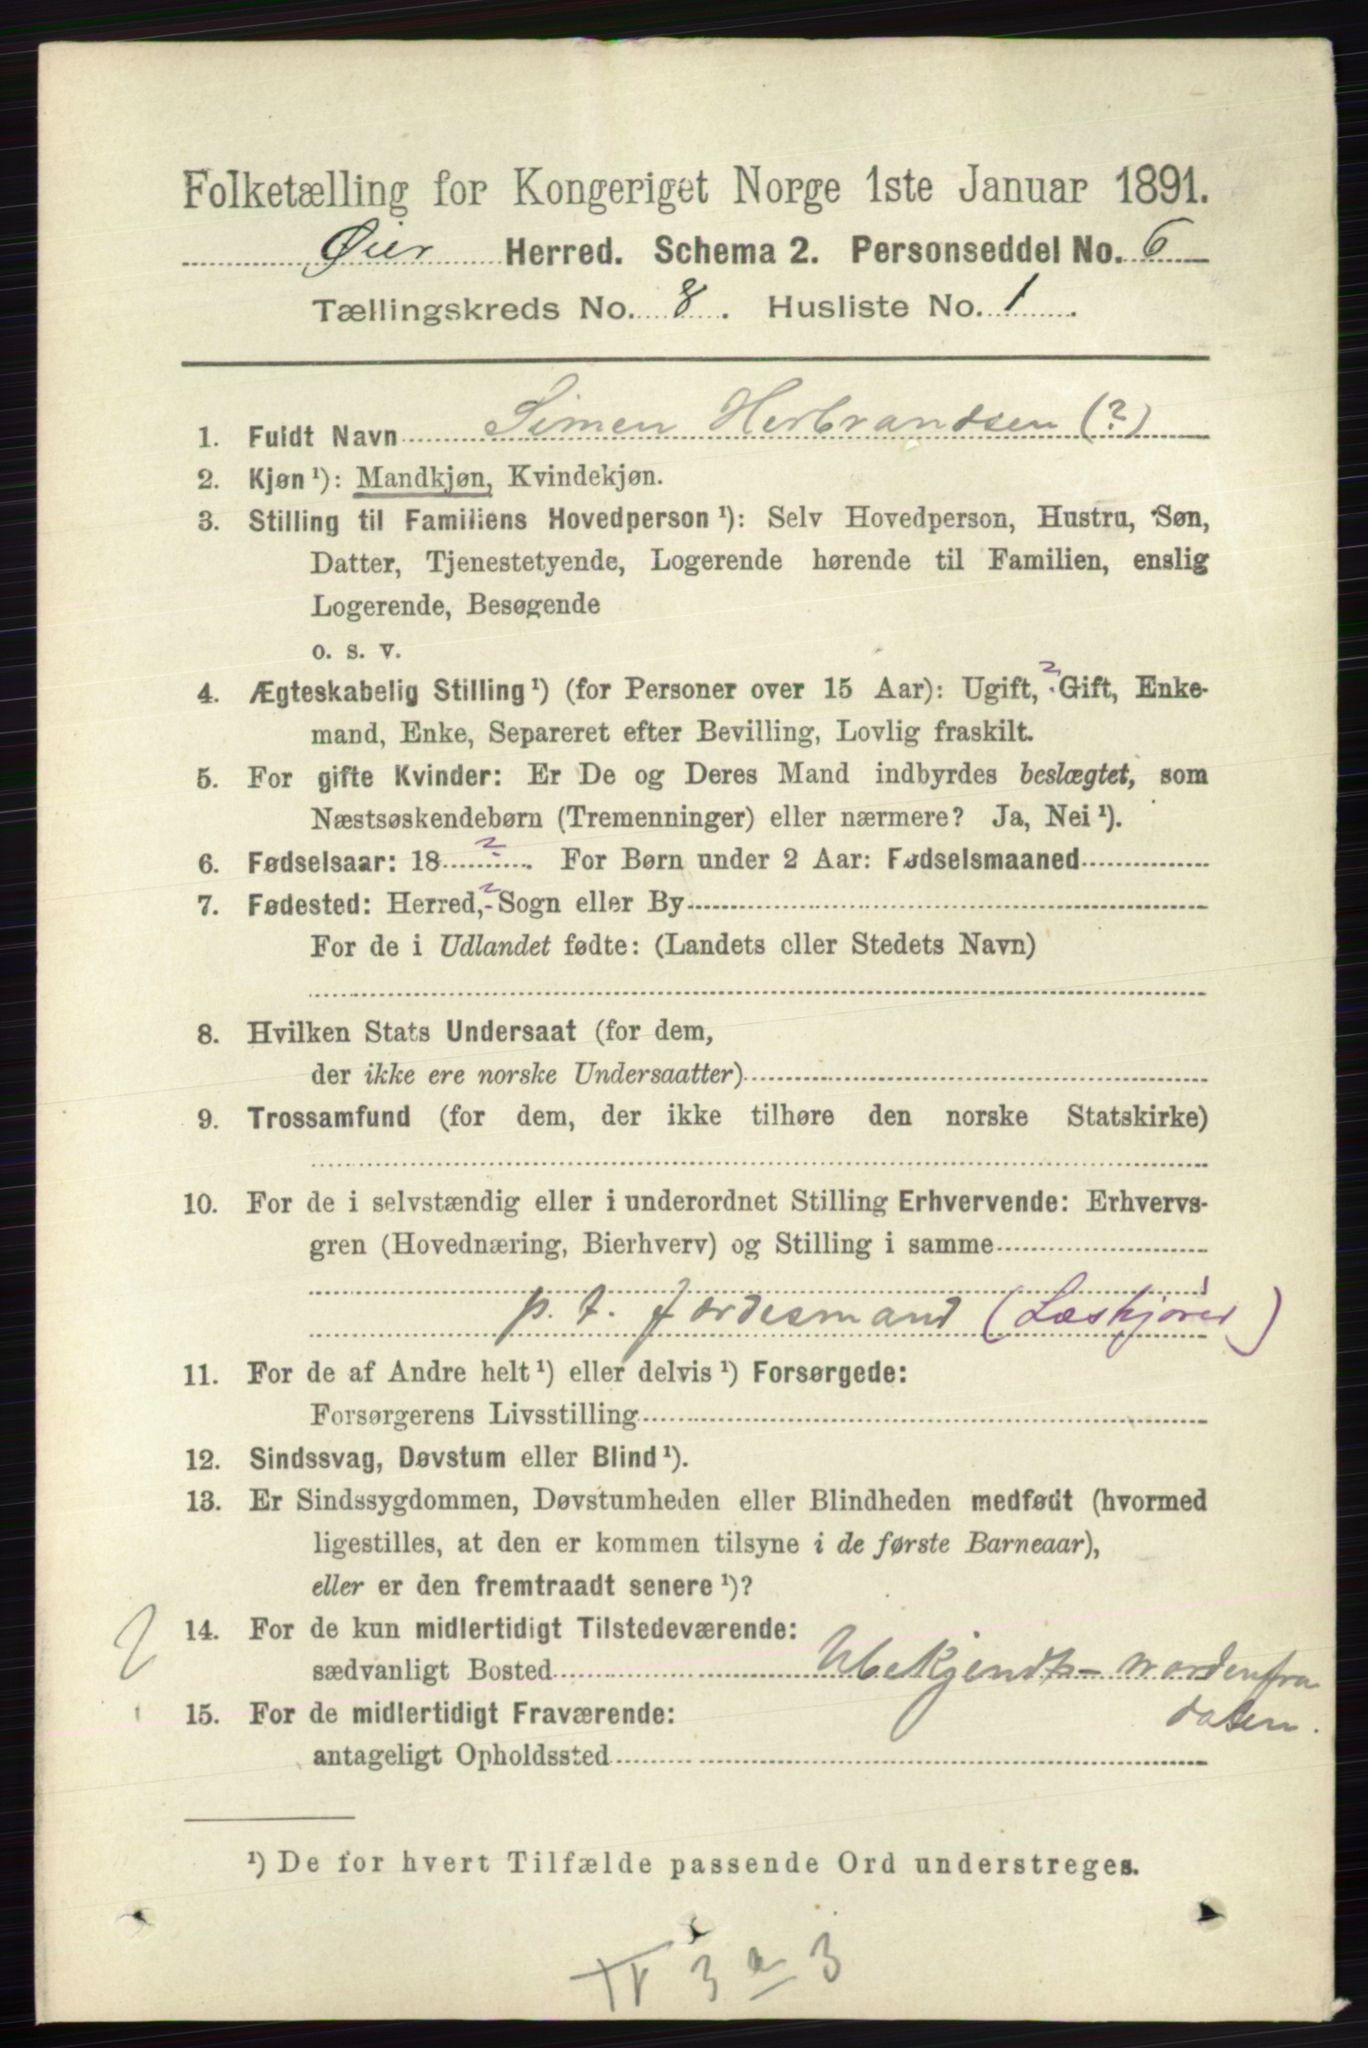 Folketælling for Kongeriget Norge 1ste Januar 1891.
Øier Herred. Schema 2. Personseddel No. 6
Tællingskreds No. 8. Husliste No. 1.
1. Fuldt Navn Simen Herbrandsen (?)
2. Kjøn¹): Mandkjøn, Kvindekjøn.
3. Stilling til Familiens Hovedperson¹): Selv Hovedperson, Hustru, Søn,
Datter, Tjenestetyende, Logerende hørende til Familien, enslig
Logerende, Besøgende
o. s. v.
4. Ægteskabelig Stilling¹) (for Personer over 15 Aar): Ugift, ? Gift, Enke-
mand, Enke, Separeret efter Bevilling, Lovlig fraskilt.
5. For gifte Kvinder: Er De og Deres Mand indbyrdes beslægtet, som
Næstsøskendebørn (Tremenninger) eller nærmere? Ja, Nei¹).
6. Fødselsaar: 18 ? . For Børn under 2 Aar: Fødselsmaaned
7. Fødested: Herred, ? Sogn eller By
For de i Udlandet fødte: (Landets eller Stedets Navn)
8. Hvilken Stats Undersaat (for dem,
der ikke ere norske Undersaatter)
9. Trossamfund (for dem, der ikke tilhøre den norske Statskirke)
10. For de i selvstændig eller i underordnet Stilling Erhvervende: Erhvervs-
gren (Hovednæring, Bierhverv) og Stilling i samme
p. t. Færdesmand (Læskjører)
11. For de af Andre helt¹) eller delvis¹) Forsørgede:
Forsørgerens Livsstilling
12. Sindssvag, Døvstum eller Blind¹).
13. Er Sindssygdommen, Døvstumheden eller Blindheden medfødt (hvormed
ligestilles, at den er kommen tilsyne i de første Barneaar),
eller er den fremtraadt senere¹)?
14. For de kun midlertidigt Tilstedeværende:
sædvanligt Bosted Ubekjendt - nordenfra
dalen.
15. For de midlertidigt Fraværende:
antageligt Opholdssted
¹) De for hvert Tilfælde passende Ord understreges.
IV 3 a 3